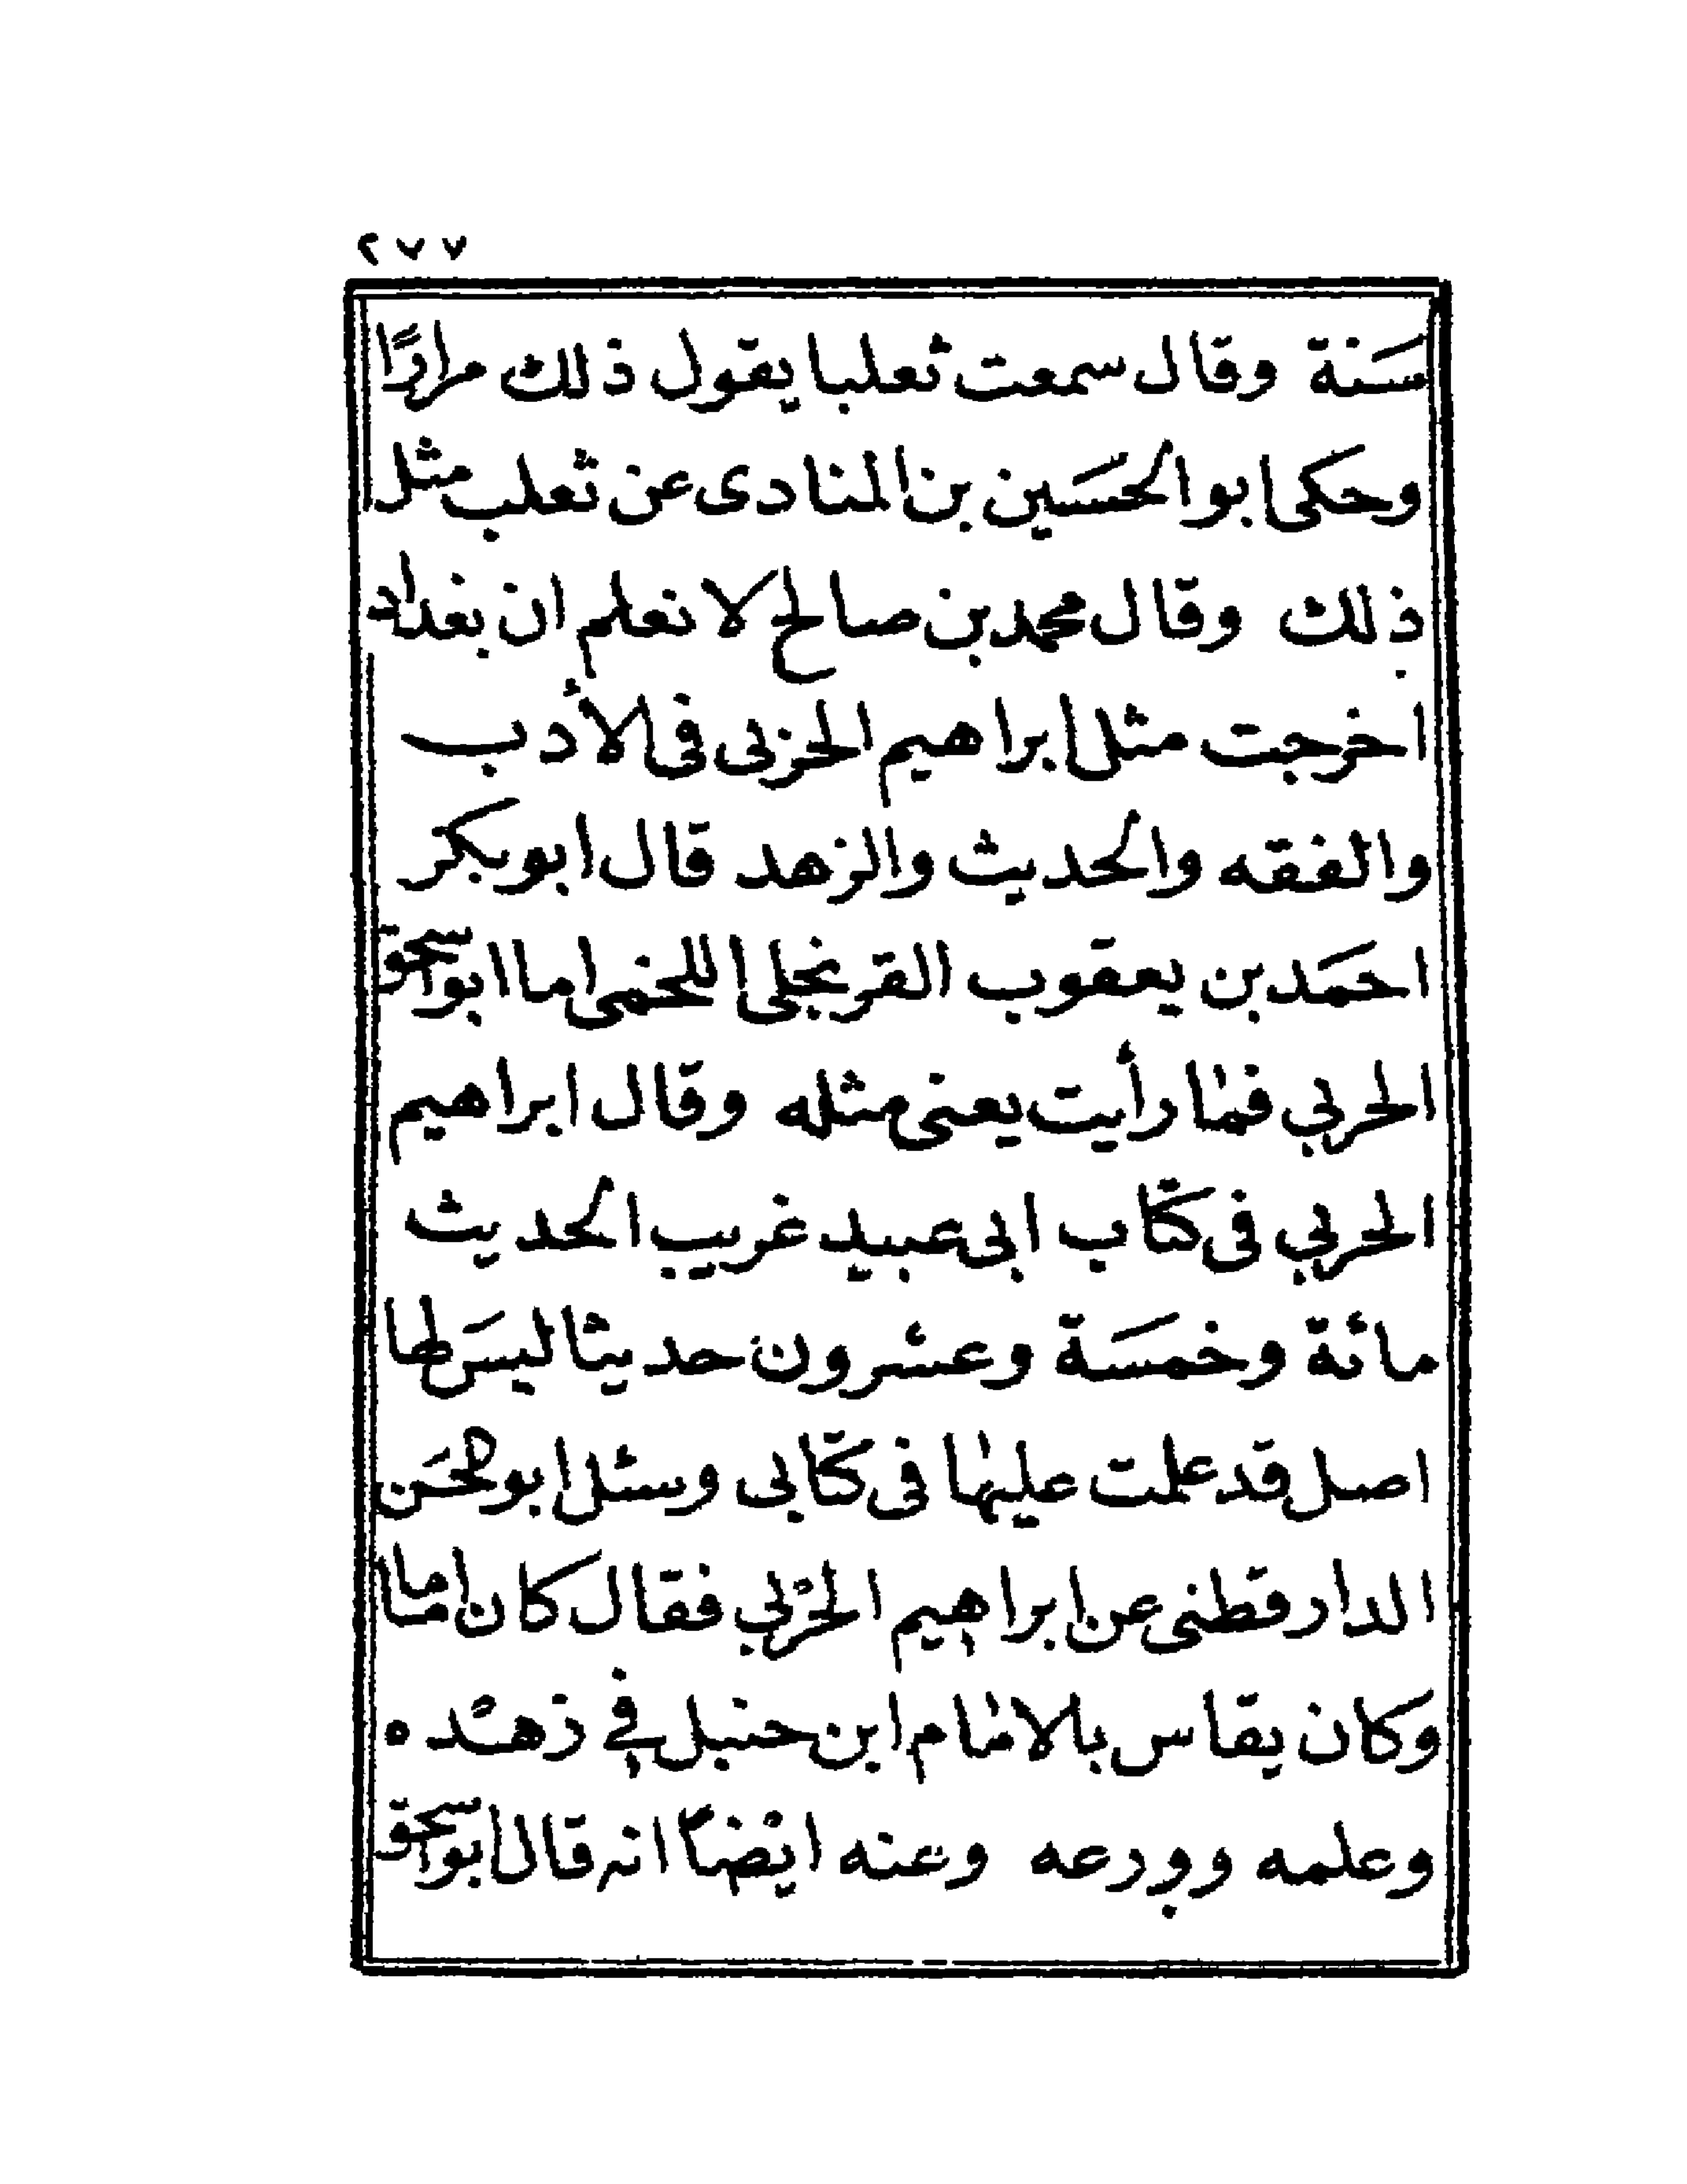 ٢٧٧
سَنة وقال سمعت ثعلبا يقول ذلك مرارًا
وحكى ابو الحسَين بن المنادى عن ثعلب مثل
ذلك وقال محمد بن صالح لا نعلم ان بغداد
اخرجت مثل ابراهيم الحزبى فى الأدب
والفقه والحديث والزهد قال ابو بكر
احمَد بن يعقوب القرنجلى اللخمى اما ابو اسحق
الحربي فما رأيت يعنى مثله وقال ابراهيم
الحربي فى كتاب ابى عبيد غريب الحديث
مائة وخمسَة وعشرون حديثا ليسَ لها
اصل قد علمت عليها فى كتابى وسئل ابو الحسَن
الدار قطنى عن ابراهيم الحربي فقال كان اماما
وكان يقاس بالامام ابن حنبل في زهده
وعلمه وورعه وعنه ايضًا انه قال ابو اسحق